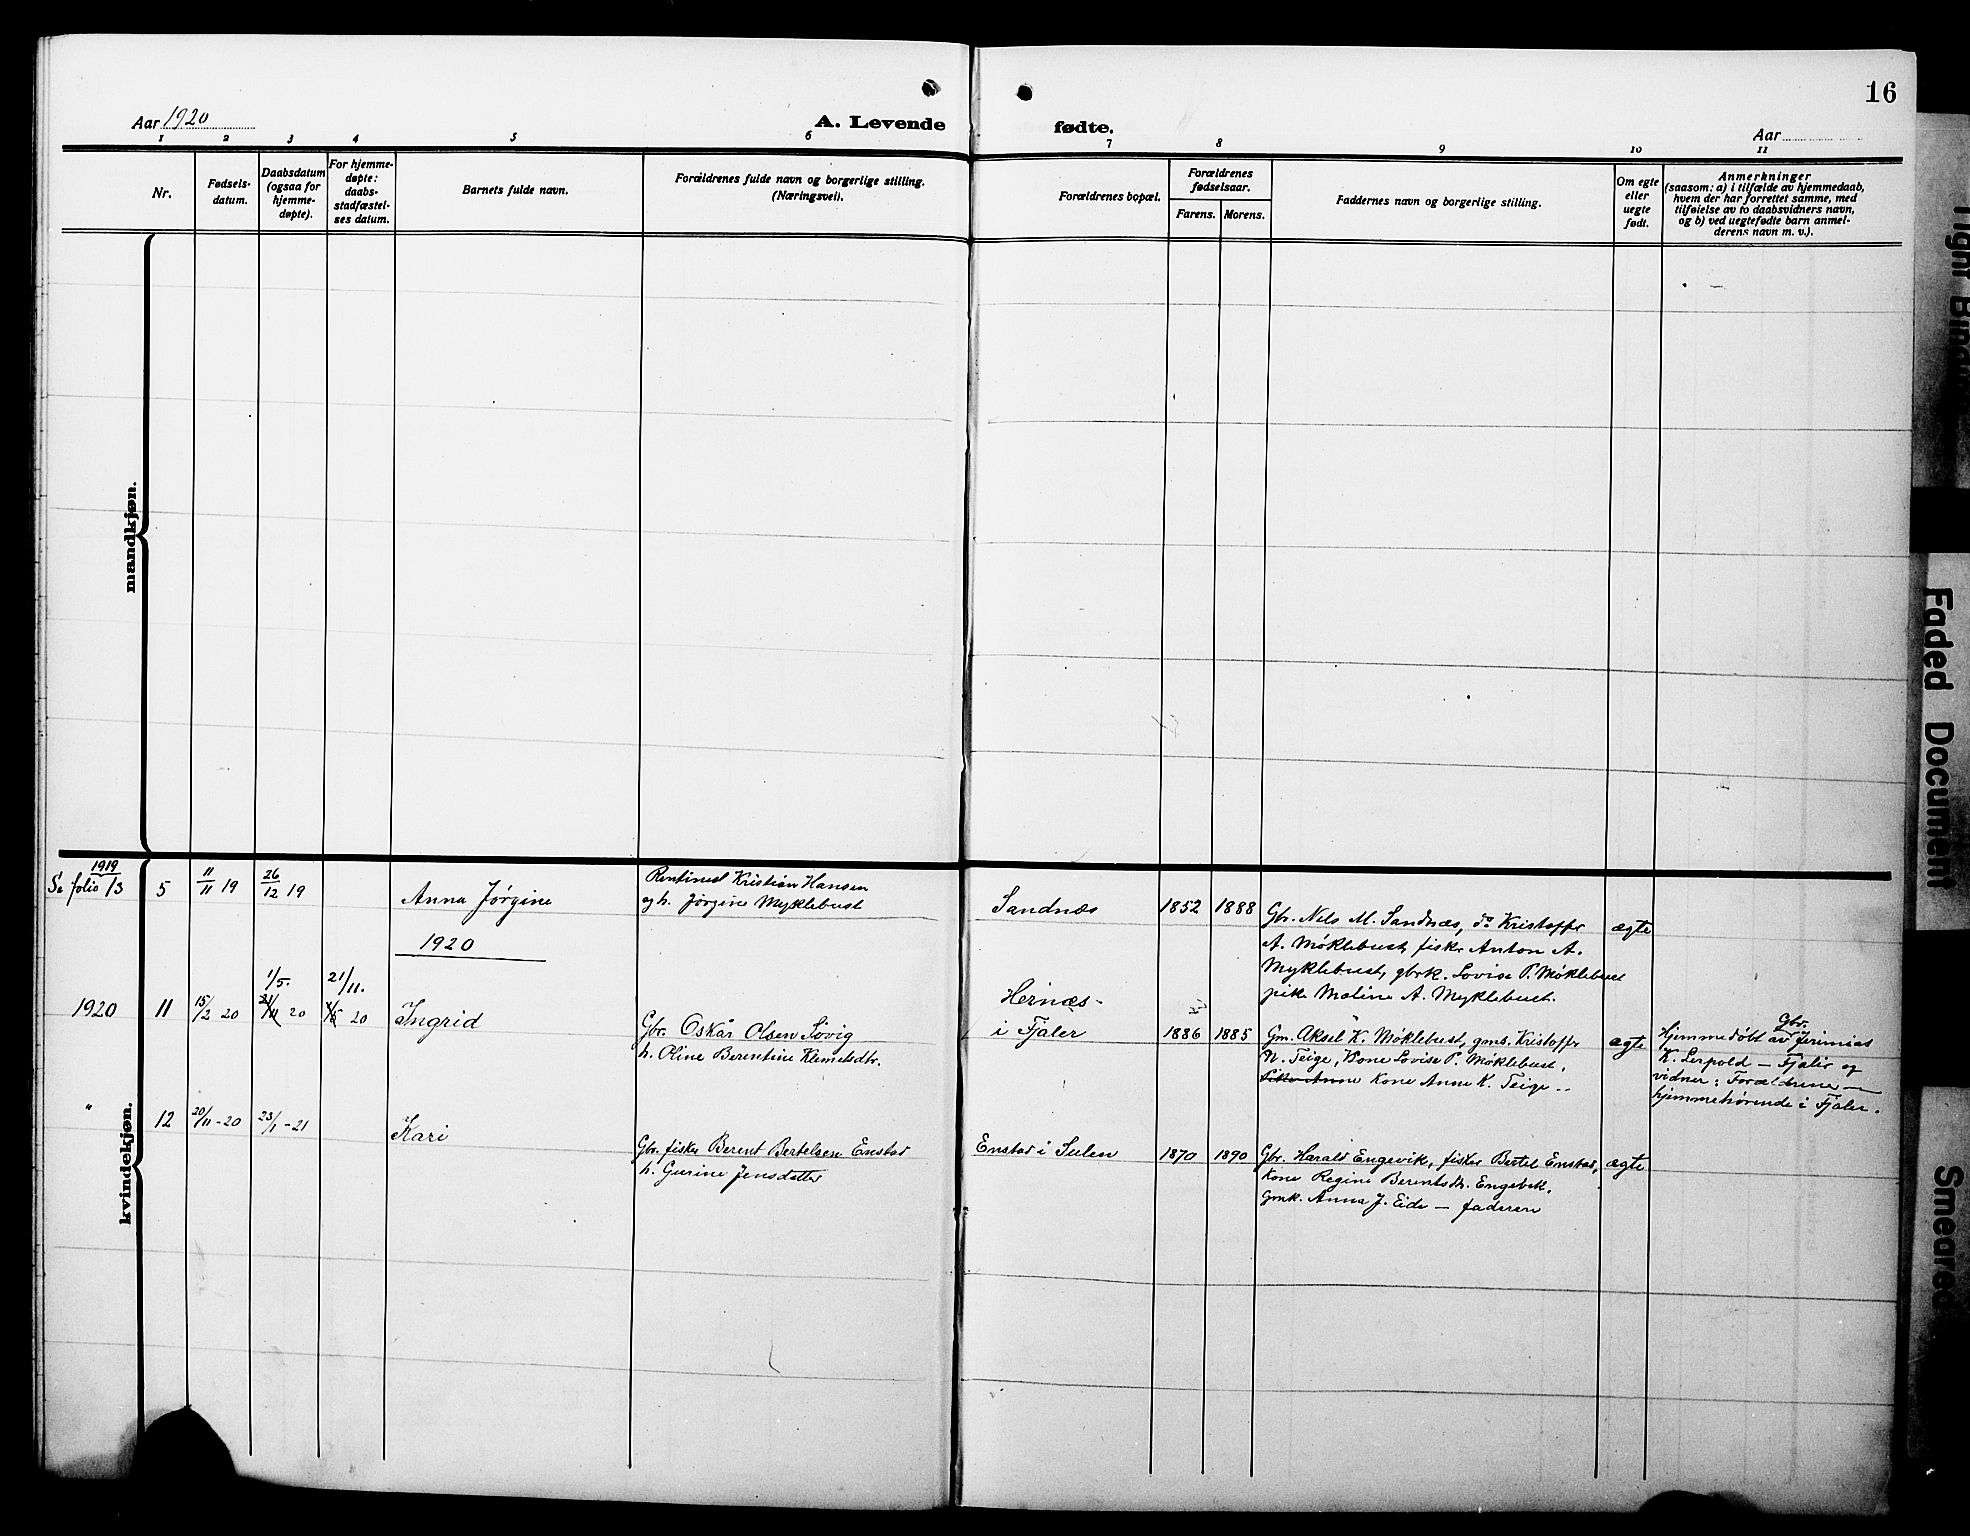 16
Aar 1920
A. Levende
fødte.
Aar
1 2 3 4 5 6 7 8 9 10 11
Nr.
Fødsels-
datum.
Daabsdatum
(ogsaa for
hjemme-
døpte).
For hjemme-
døpte:
daabs-
stadfæstel-
ses datum.
Barnets fulde navn.
Forældrenes fulde navn og borgerlige stilling.
(Næringsvei).
Forældrenes bopæl.
Forældrenes
fødselsaar.
Farens. Morens.
Faddernes navn og borgerlige stilling.
Om egte
eller
uegte
født.
Anmerkninger
(saasom: a) i tilfælde av hjemmedaab,
hvem der har forrettet samme, med
tilføielse av to daabsvidners navn,
og b) ved uegtefødte barn anmel-
derens navn m. v.).
mandkjøn.
kvindekjøn.
1919
Se folio 13
5
11/11 19
26/12 19
Anna Jørgine
Rentinest Kristian Hansen
og h. Jørgine Myklebust
Sandnæs
1852 1888
Gbr. Nels M. Sandnæs, do Kristoffer
A. Møklebust, fisker Anton A.
Myklebust, gbrk. Lovise P. Møklebust
pike Maline A. Myklebust.
ægte
1920
1920
11
15/2 20
1/5.
21/11 20
21/11.
1/5 20
Ingrid
Gbr. Oskar Olsen Søvig
h. Oline Berentine Klemetsdtr.
Hernæs-
i Fjaler
1886 1885
Gm. Aksel K. Møklebust, gms. Kristoffer
N. Teige, Kone Lovise P. Møklebust,
Pike Anne Kone Anne K. Teige --
ægte
Gbr.
Hjemmedøbt av Jerimias
K. Lerpold — Fjaler og
vidner: Forældrene —
hjemmehørende i Fjaler.
"
12
20/11 - 20
23/1 - 21
Kari
Gbr. fisker Berent Bertelsen Enstad
h. Gurine Jensdatter
Enstad i Sulen
1870 1890
Gbr. Harald Engevik, fisker Bertel Enstad,
Kone Regine Berentsdtr. Engevik,
Gmk. Anna J. Eide — faderen
ægte
Tight Bind
Faded Document
Smeared